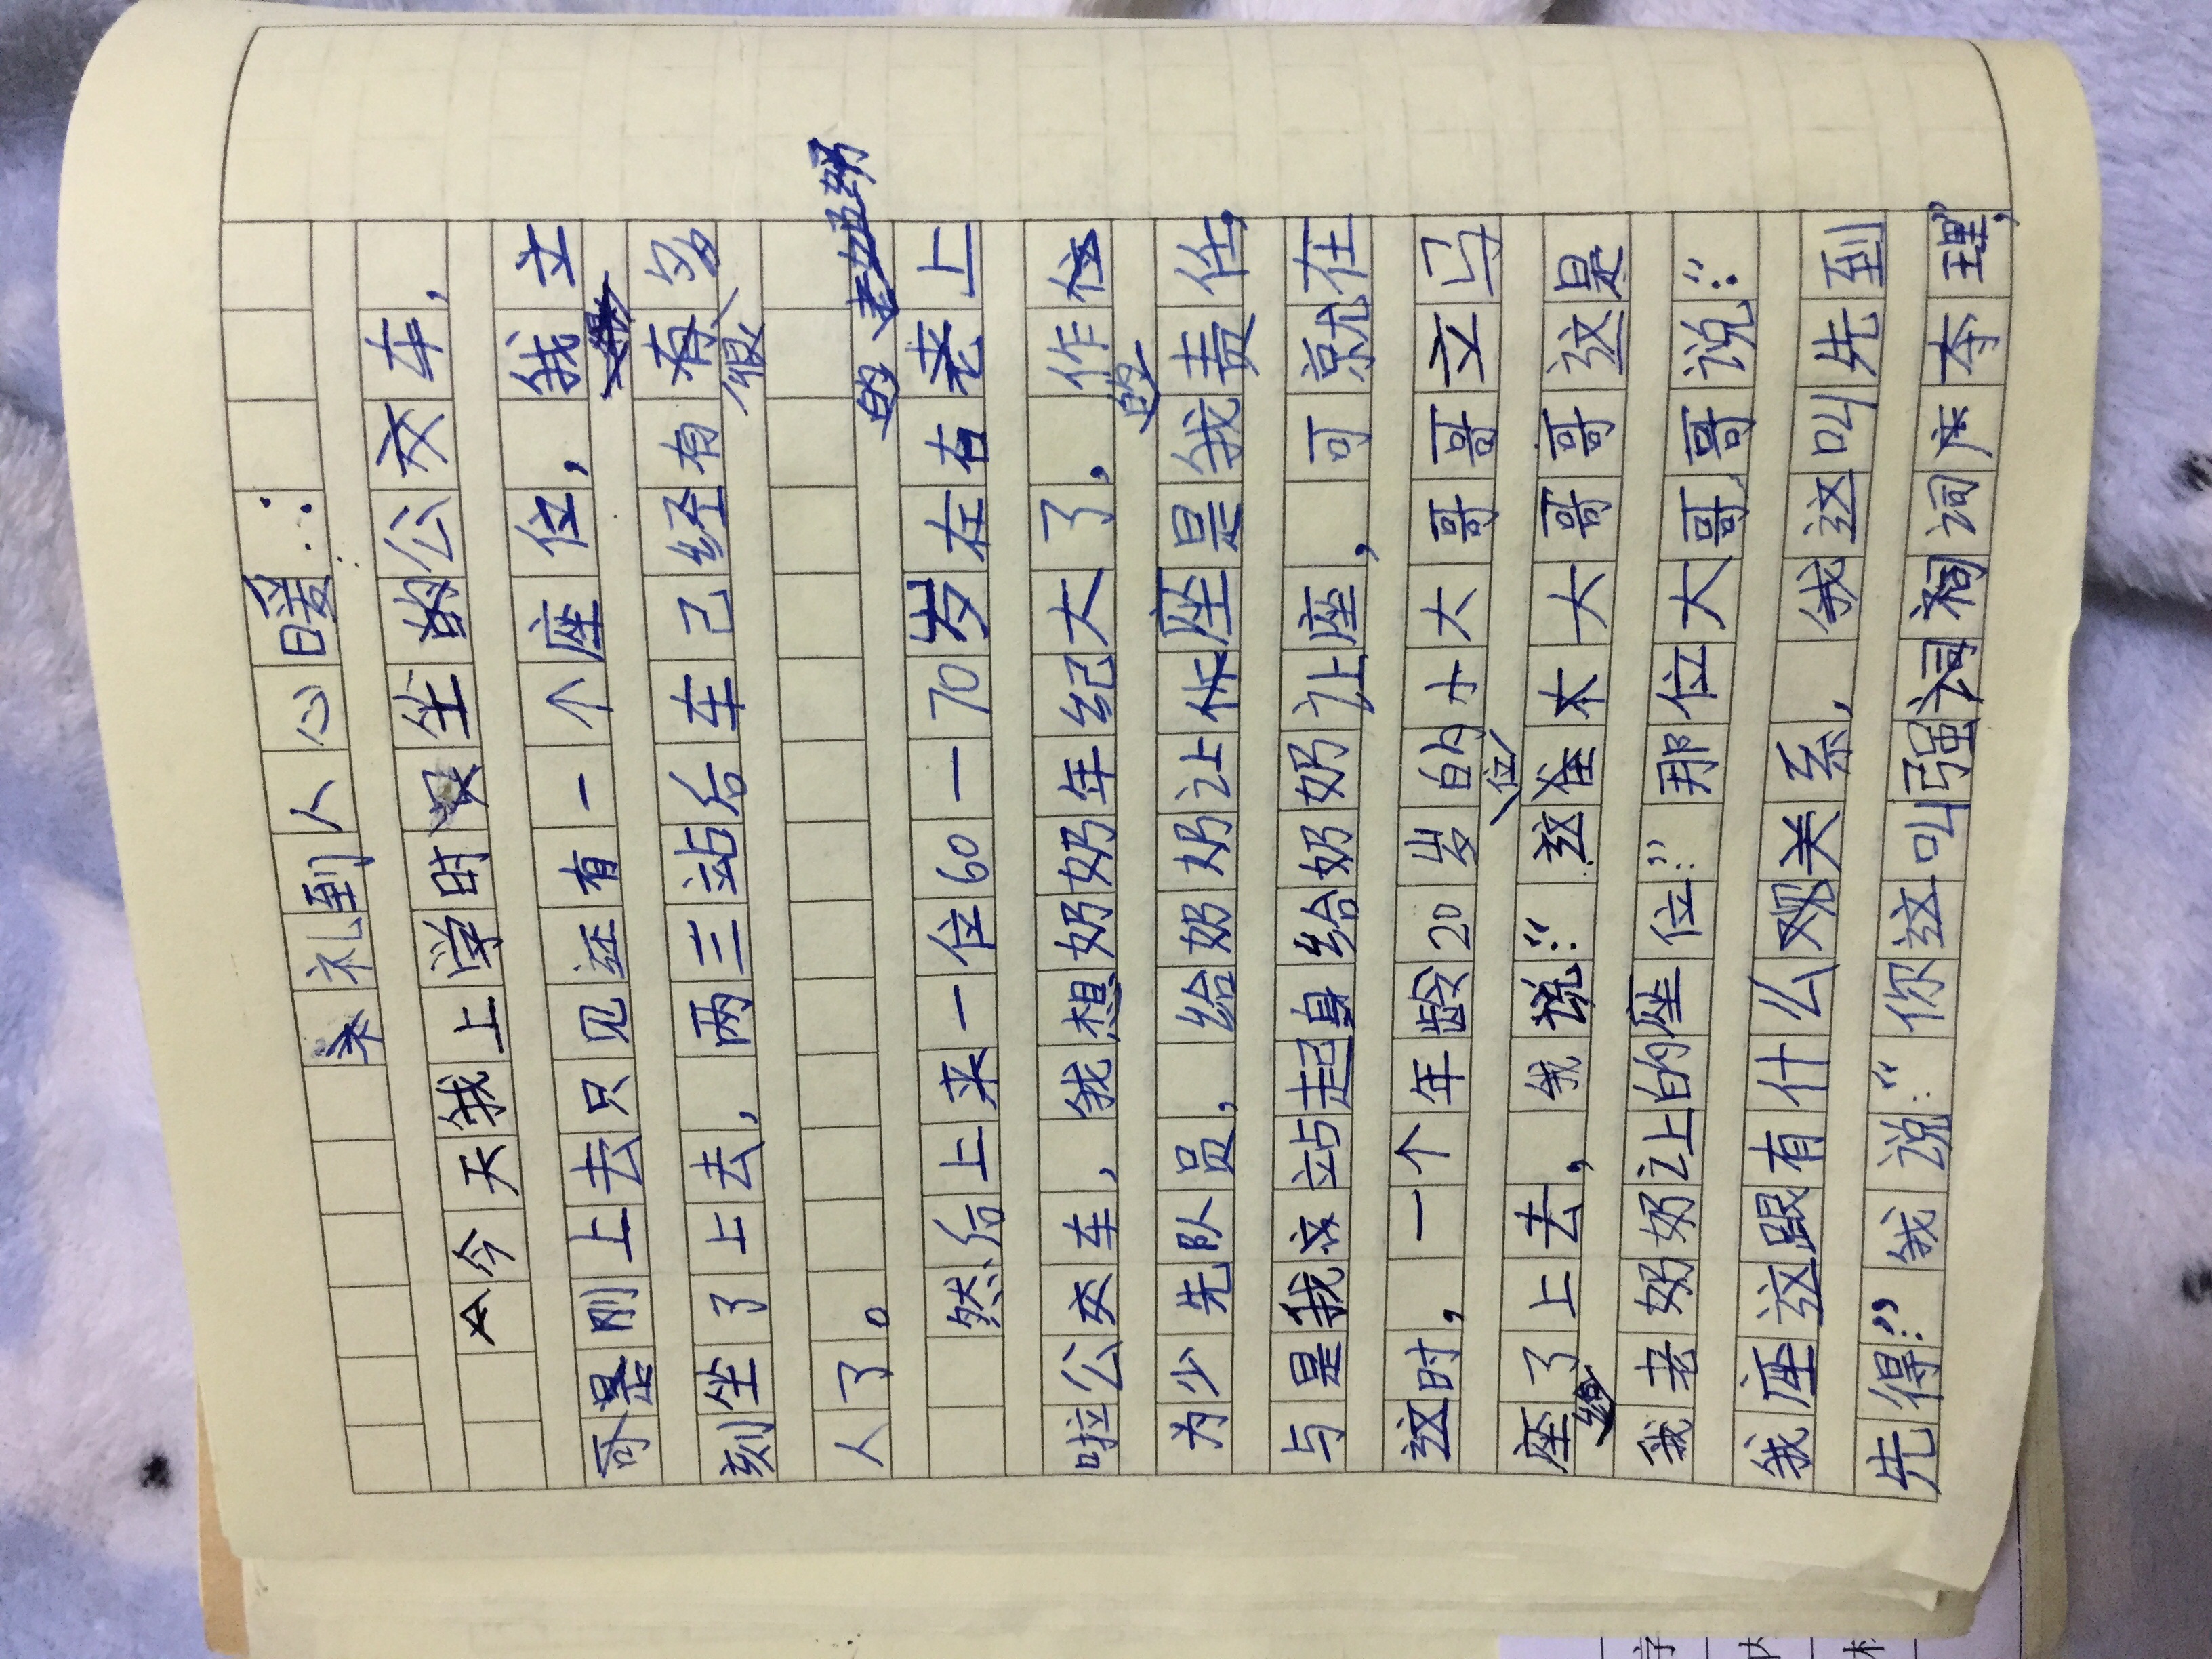 礼到人心暖……
今天我上学时坐的公交车，
可是刚上去只见还有一个座位，我立
刻坐了上去，两三站后车己经有很多
人了。
然后上来一位60一70岁在右的老上
啦公交车，我想奶奶年纪大了，作
为少先队员，给奶奶让座是我的责任，
与是我站起身给奶奶让座，可就在
这时，一个年龄20岁的大哥哥立马
座了上去，我说：“这位大哥哥这是
我给老奶奶让的座位！”那位大哥哥说：“
我座这跟有什么关系，我这叫先到
先得！”我说：“你这叫强词夺理，